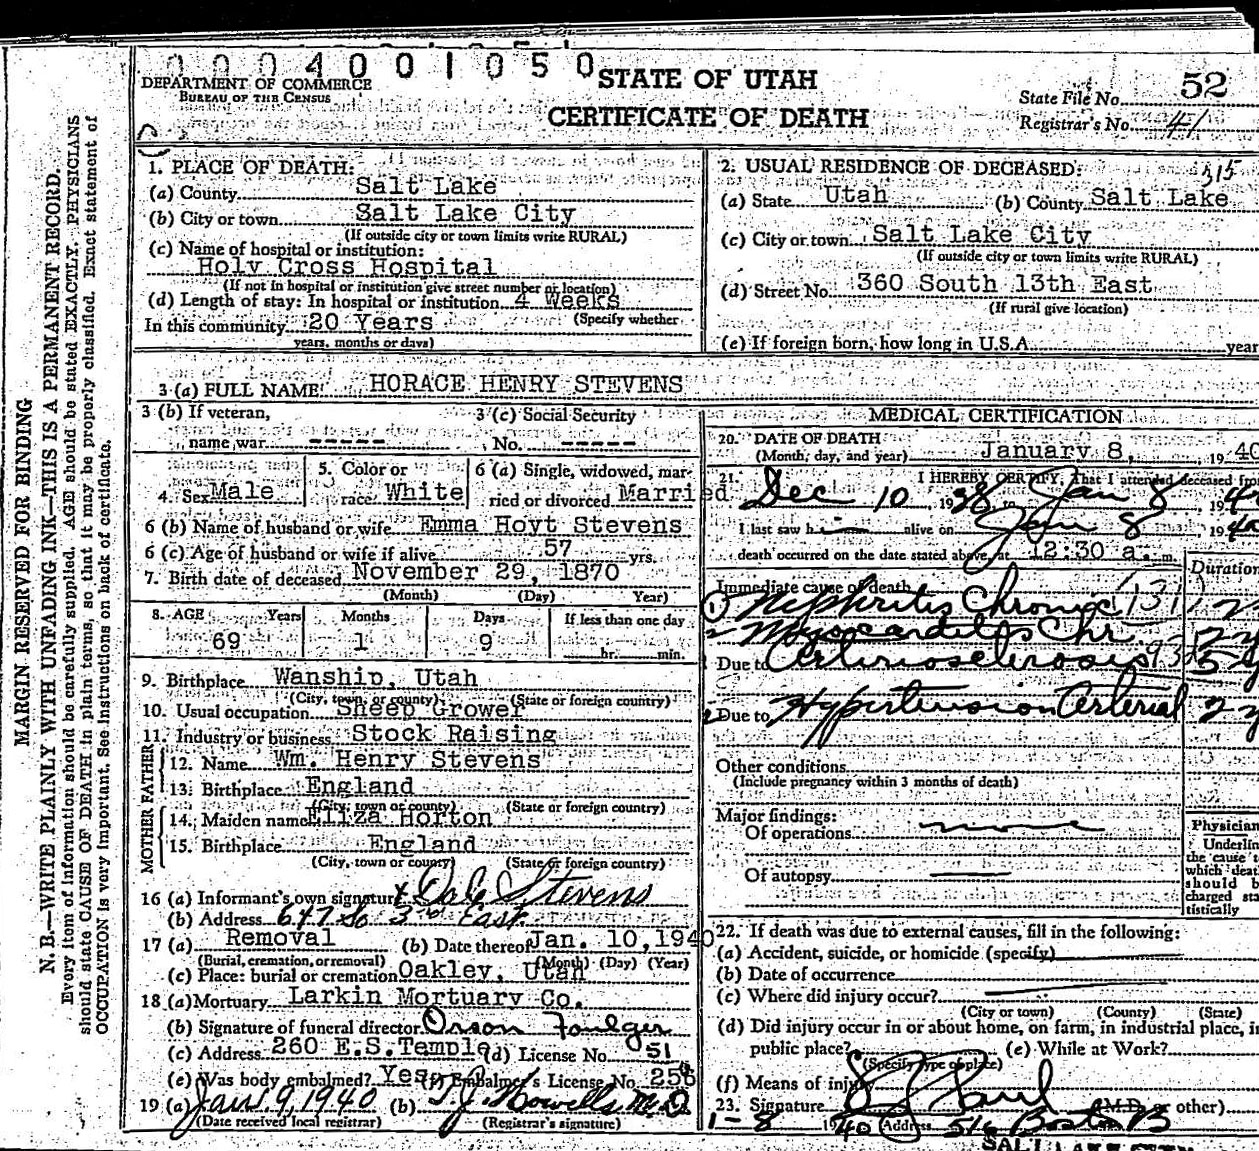 0004001050
DEPARTMENT OF COMMERCE
BUREAU OF THE CENSUS
STATE OF UTAH
CERTIFICATE OF DEATH
State File No. 52
Registrar's No. 41
1. PLACE OF DEATH:
(a) County Salt Lake
(b) City or town Salt Lake City
(If outside city or town limits write RURAL)
(c) Name of hospital or institution:
Holy Cross Hospital
(If not in hospital or institution give street number or location)
(d) Length of stay: In hospital or institution 4 Weeks
(Specify whether
In this community 20 Years
years, months or days)
2. USUAL RESIDENCE OF DECEASED: 315
(a) State Utah (b) County Salt Lake
(c) City or town Salt Lake City
(If outside city or town limits write RURAL)
(d) Street No. 360 South 13th East
(If rural give location)
(e) If foreign born, how long in U.S.A. year
3 (a) FULL NAME HORACE HENRY STEVENS
3 (b) If veteran,
name war -----
3 (c) Social Security
No. -----
4. Sex Male
5. Color or
race White
6 (a) Single, widowed, mar-
ried or divorced Married
6 (b) Name of husband or wife Emma Hoyt Stevens
6 (c) Age of husband or wife if alive 57 yrs.
7. Birth date of deceased November 29, 1870
(Month) (Day) Year)
8. AGE Years Months Days If less than one day
69 1 9 hr. min.
9. Birthplace Wanship, Utah
(City, town, or county) (State or foreign country)
10. Usual occupation Sheep Grower
11. Industry or business Stock Raising
FATHER
12. Name Wm. Henry Stevens
13. Birthplace England
(City, town or county) (State or foreign country)
MOTHER
14. Maiden name Eliza Horton
15. Birthplace England
(City, town or county) (State or foreign country)
16 (a) Informant's own signature x Dale Stevens
(b) Address 647 So 3rd East
17 (a) Removal (b) Date thereof Jan. 10, 1940
(Burial, cremation, or removal) (Month) (Day) (Year)
(c) Place: burial or cremation Oakley, Utah
18 (a) Mortuary Larkin Mortuary Co.
(b) Signature of funeral director Orson Foulger
(c) Address 260 E.S.Temple (d) License No. 51
(e) Was body embalmed? Yes (f) Embalmer's License No. 256
19 (a) Jan. 9, 1940 (b) T.J. Howells M.D.
(Date received local registrar) (Registrar's signature)
MEDICAL CERTIFICATION
20. DATE OF DEATH
(Month, day, and year) January 8, 1940
21. I HEREBY CERTIFY, That I attended deceased from
Dec 10 1938 to Jan 8 194
I last saw h alive on Jan 8 194
death occurred on the date stated above, at 12:30 a. m.
Duration
Immediate cause of death
① Nephritis Chronic (131) 2
2 Myocarditis Chr. 2
Due to Arteriosclerosis 93 5 y
Due to Hypertension Arterial 2 y
Other conditions
(Include pregnancy within 3 months of death)
Major findings:
Of operations none
Of autopsy
Physician
Underlin
the cause t
which deat
should b
charged sta
tistically
22. If death was due to external causes, fill in the following:
(a) Accident, suicide, or homicide (specify)
(b) Date of occurrence
(c) Where did injury occur?
(City or town) (County) (State)
(d) Did injury occur in or about home, on farm, in industrial place, in
public place? (e) While at Work?
(Specify type of place)
(f) Means of injury
23. Signature (M.D. or other)
1-8 1940 Address 516 Boston B
SALT LAKE CITY
MARGIN RESERVED FOR BINDING
N. B.—WRITE PLAINLY WITH UNFADING INK—THIS IS A PERMANENT RECORD.
Every item of information should be carefully supplied. AGE should be stated EXACTLY. PHYSICIANS
should state CAUSE OF DEATH in plain terms, so that it may be properly classified. Exact statement of
OCCUPATION is very important. See instructions on back of certificate.